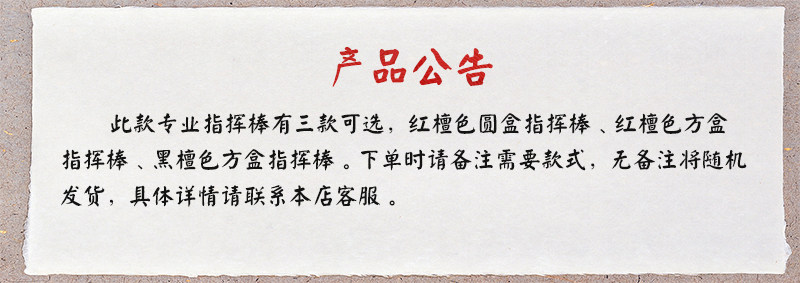 产品公告
此款专业指挥棒有三款可选，红檀色圆盒指挥棒、红檀色方盒
指挥棒、黑檀色方盒指挥棒。下单时请备注需要款式，无备注将随机
发货，具体详情请联系本店客服。